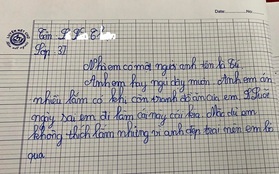 Date: No:
Tên
Lớp 37
Nhà em có một người anh tên là Tú.
Anh em hay ngủ dậy muộn. Anh em ăn
nhiều lắm có khi còn tranh đồ ăn của em.
ngày sai em đi làm cái này cái kia. Mặc dù em
không thích lắm nhưng vì anh đẹp trai nên em bỏ
qua